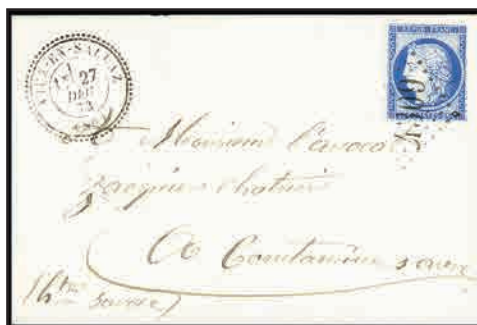 VIUZ-EN-SALLAZ
27
DEC
73
REPUB FRANC
Monsieur l'avocat
Jacquier Chatrier
A Contamine s arve
(Hte savoie)